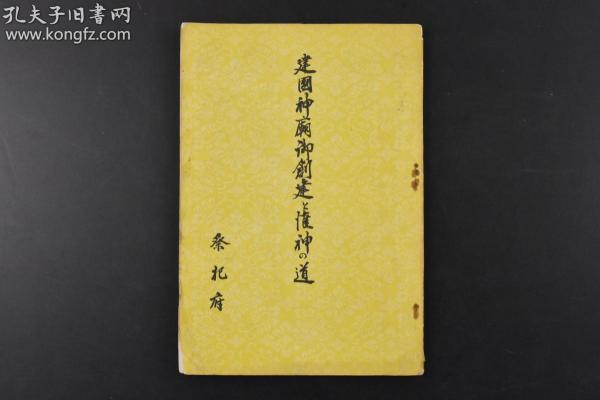 孔夫子旧书网
www.kongfz.com
建國神廟御創建と惟神の道
祭祀府